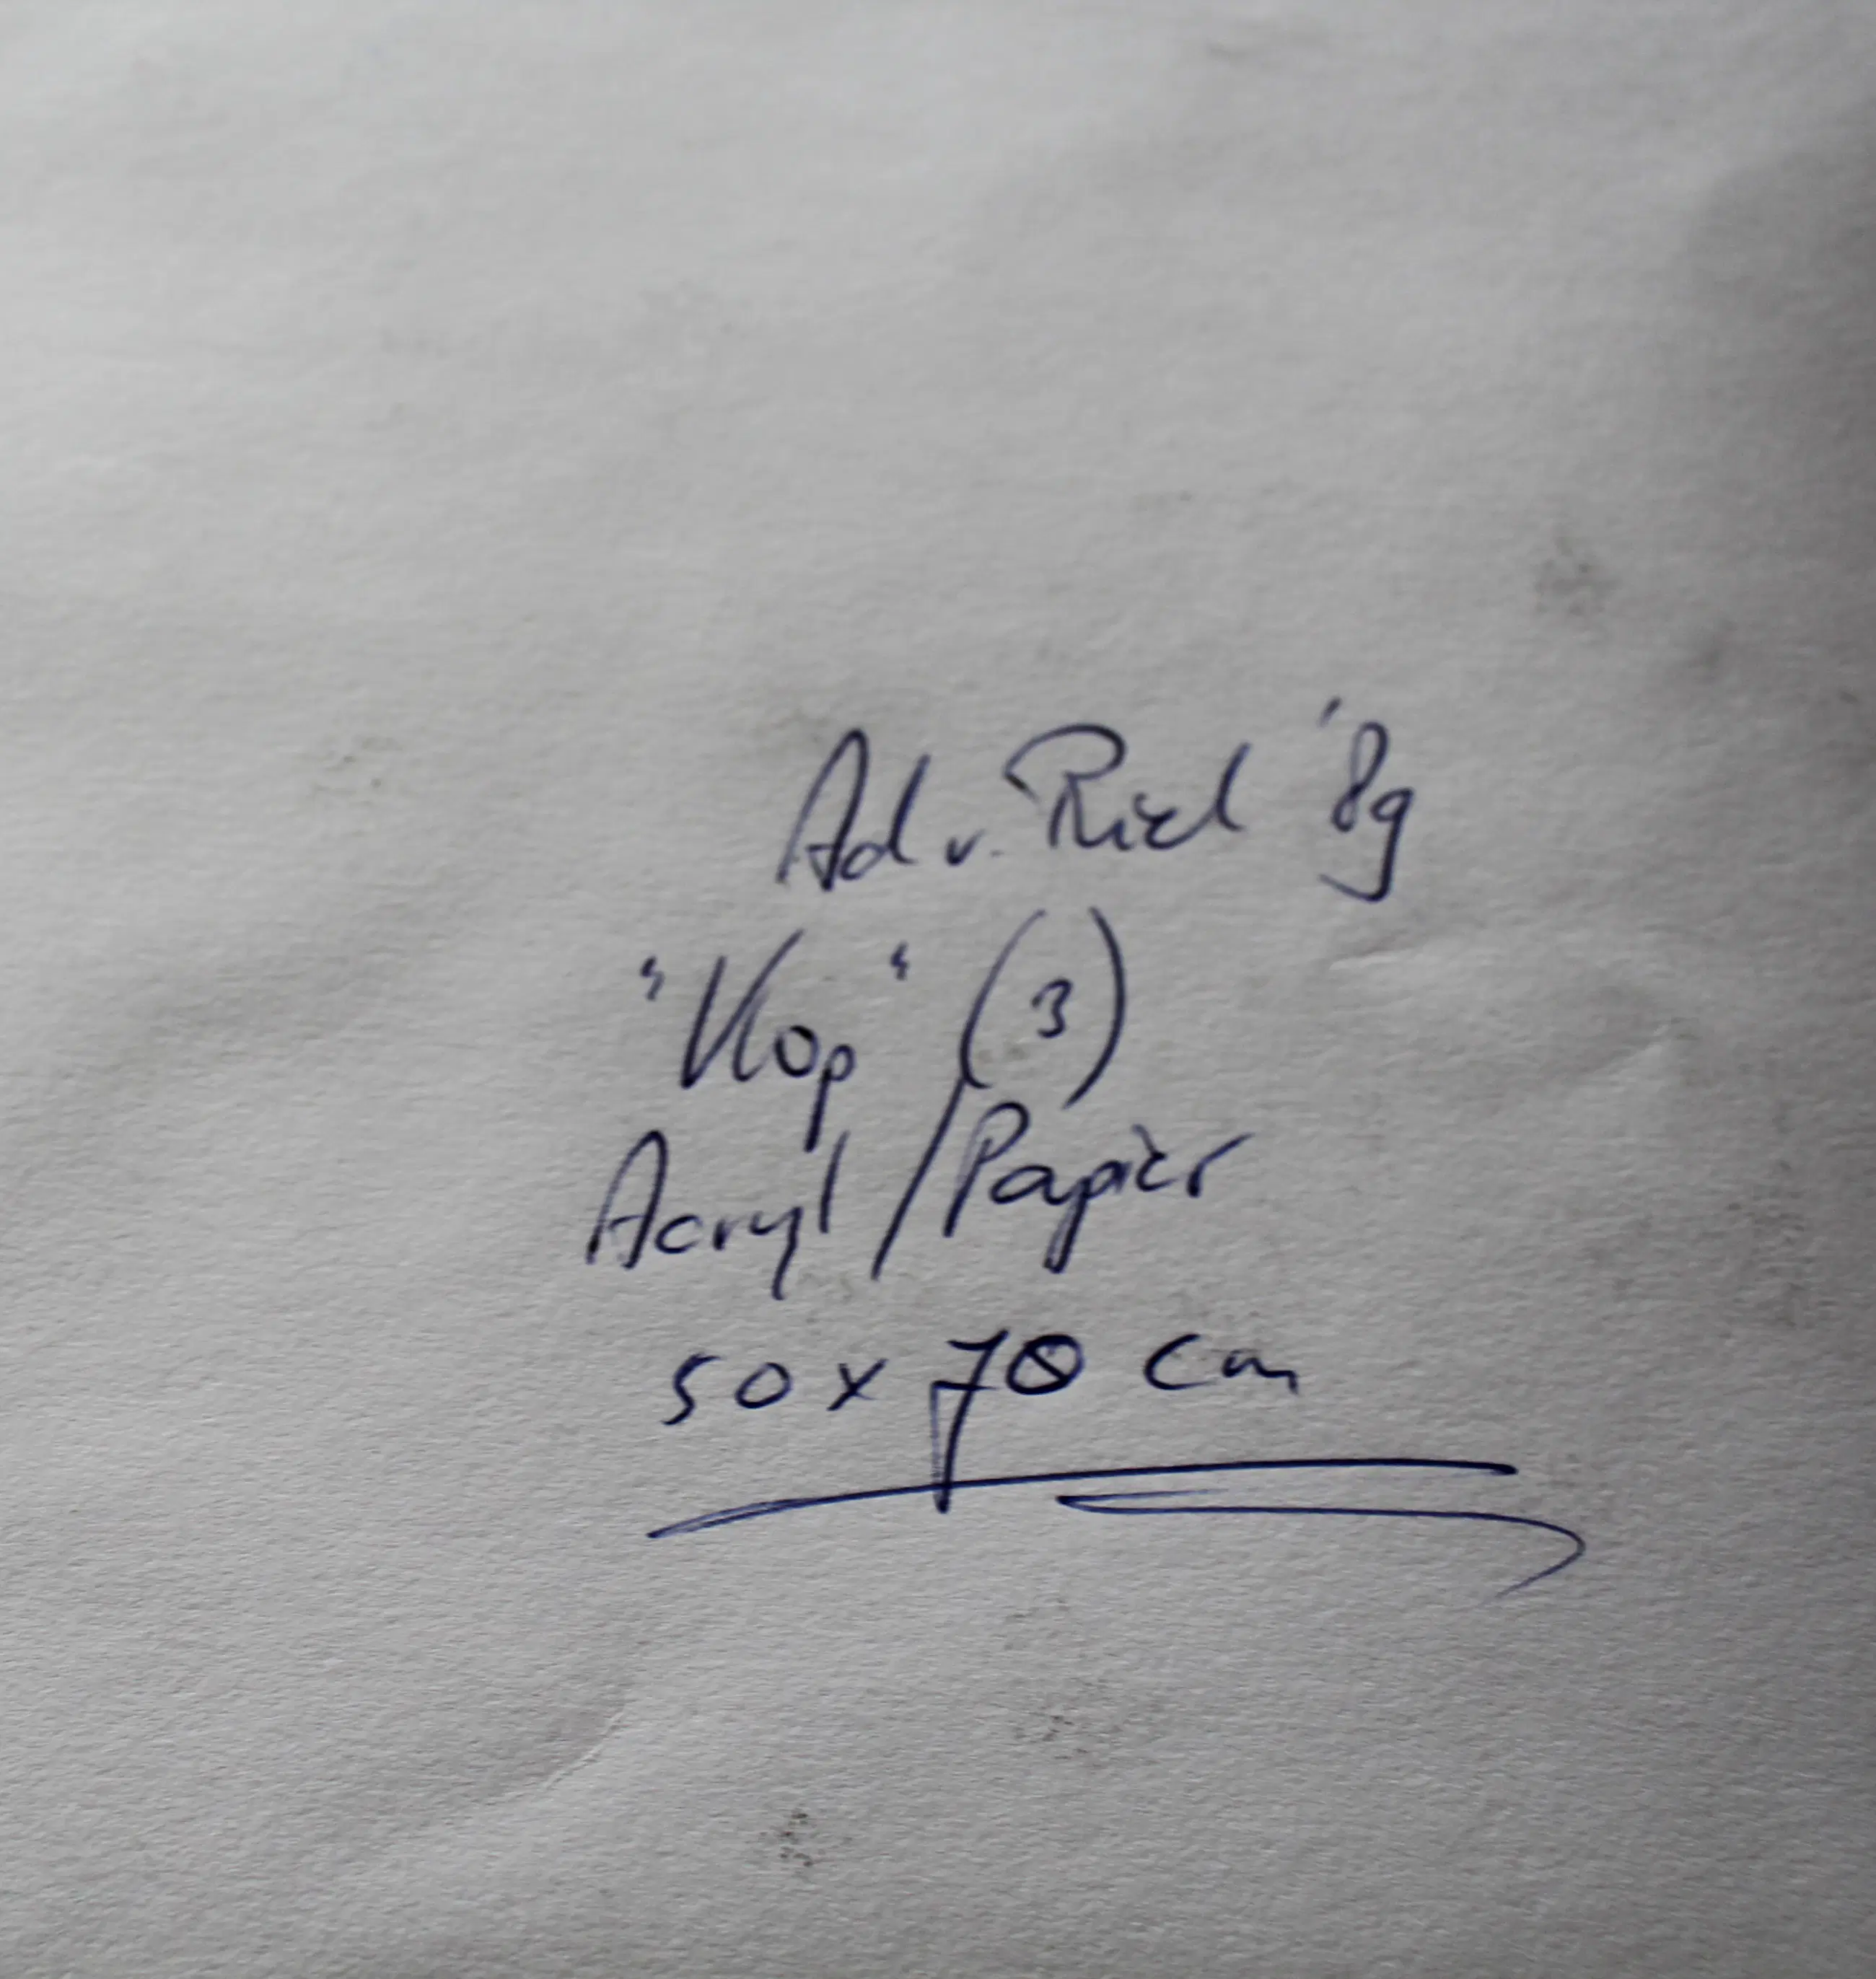 Ad v. Riel '89
"Klop" (3)
Acryl/Papier
50 x 70 cm